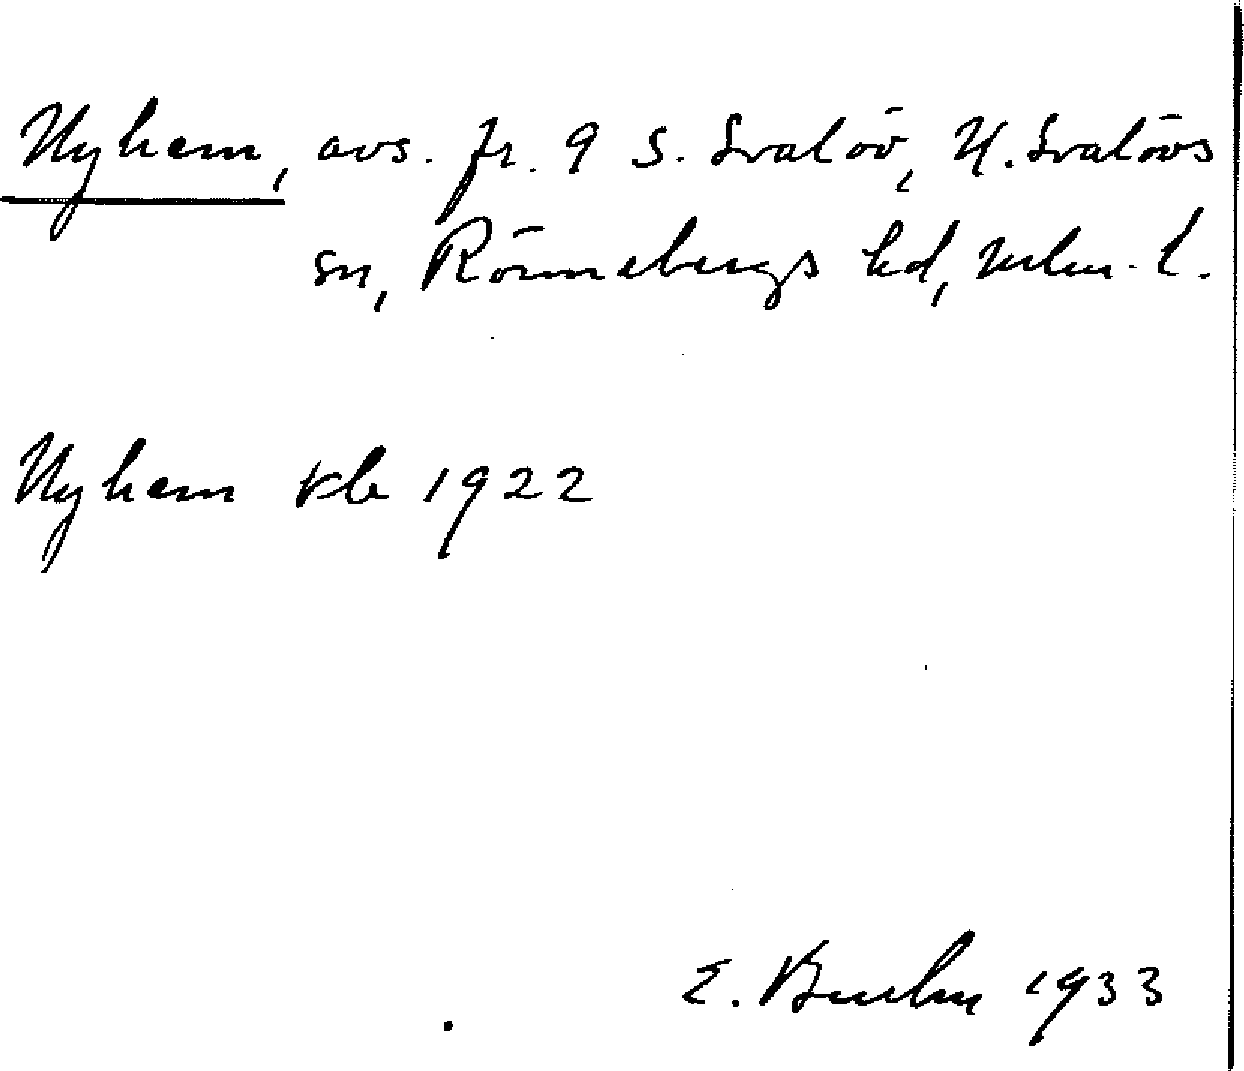 Nyhem, avs. fr. 9 S. Svalöv, N. Svalövs
sn, Rönnebergs hd, Mlm. l.
Nyhem kb 1922
E. 1933